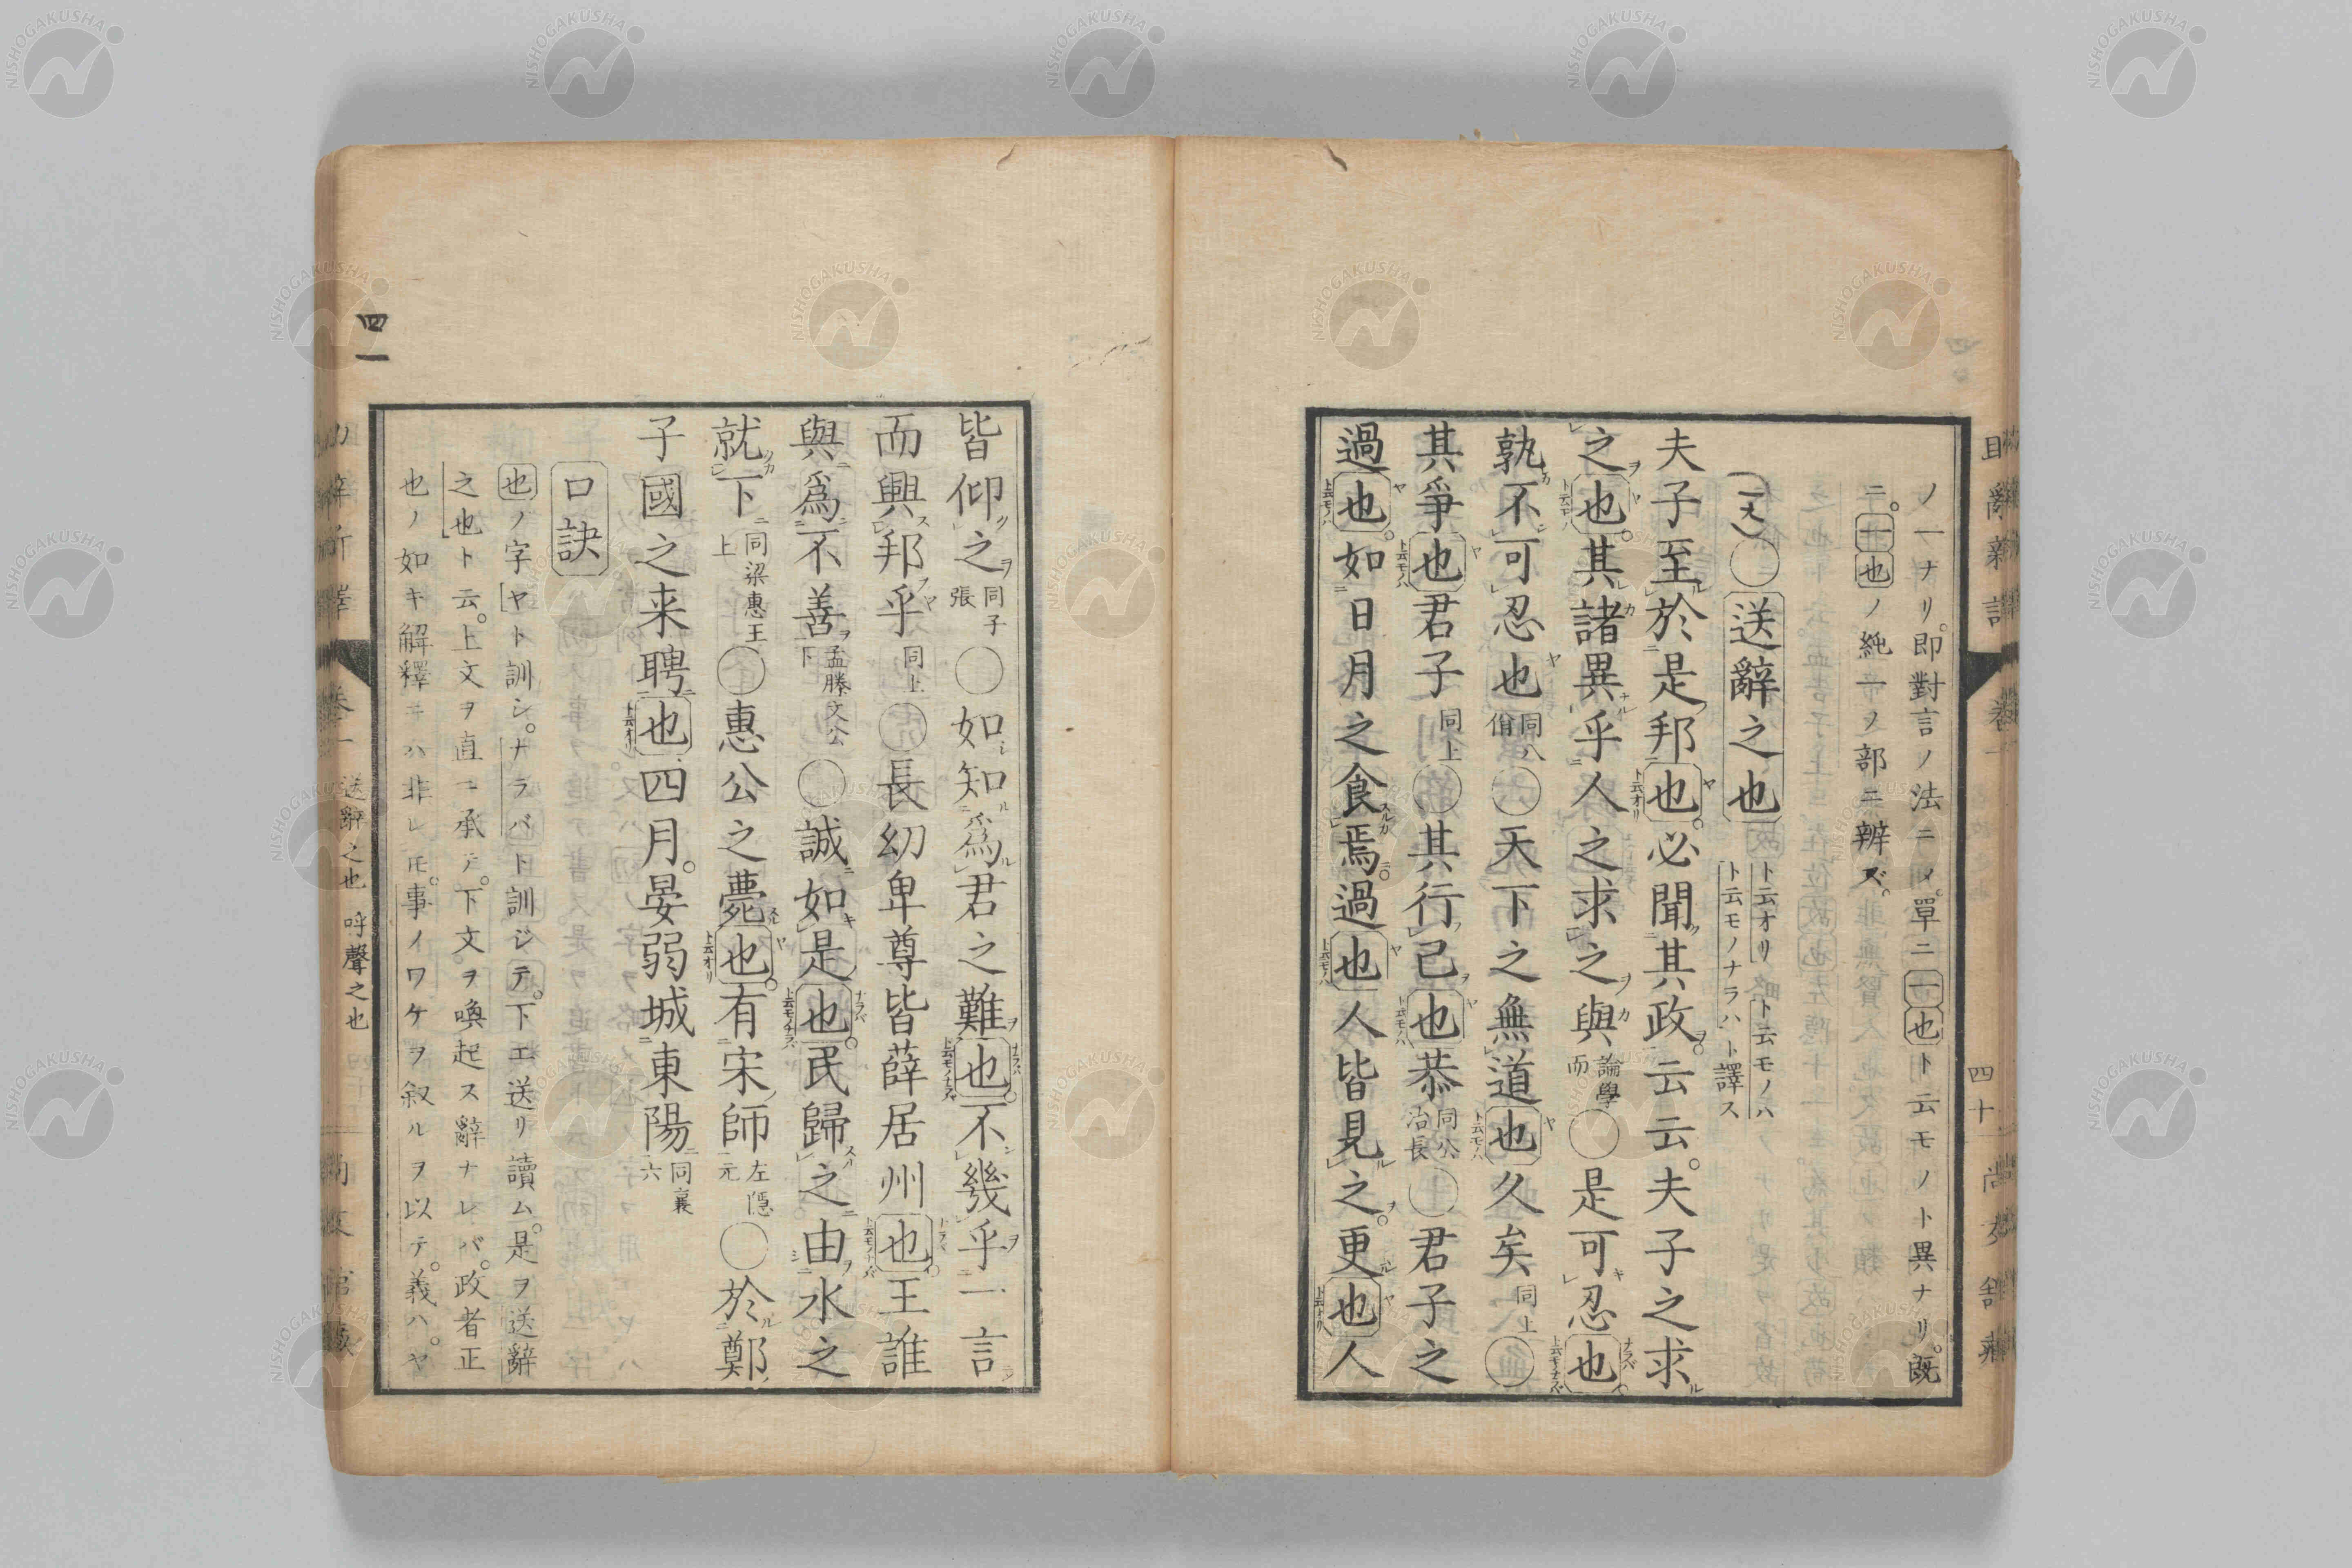 ノ一ナリ。即對言ノ法ニメ。單ニ一也ト云モノト異ナリ。既
ニ。一也ノ純一ヲ部ニ辨ズ。
〇送辭之也 ト云オリ ト云モノハ
ト云モノナラハ ト譯ス
夫子至於是邦也。必聞其政。云云。夫子之求
之也。其諸異乎人之求之與 論學而 〇是可忍也
孰不可忍也 同八佾 〇天下之無道也久矣 同上 〇
其爭也君子 同上 〇其行己也恭 同公冶長 〇君子之
過也。如日月之食焉。過也人皆見之。更也人
皆仰之 同子張 〇如知爲君之難也。不幾乎一言
而興邦乎 同上 〇長幼卑尊皆薛居州也。王誰
與爲不善 孟滕文公下 〇誠如是也。民歸之由水之
就下 同梁惠王上 〇惠公之薨也。有宋師 左隱元 〇於鄭
子國之来聘也四月。晏弱城東陽 同襄六
口訣
也ノ字ヤト訓シ。ナラバト訓ジテ。下エ送リ讀ム。是ヲ送辭
之也ト云。上文ヲ直ニ承テ。下文ヲ喚起ス辭ナレバ。政者正
也ノ如キ解釋ニハ非レ𪜈。事イワケヲ叙ルヲ以テ。義ハ。ヤ
四一
卷一 送辭之也 呼聲之也
四十
NISHOGAKUSHA